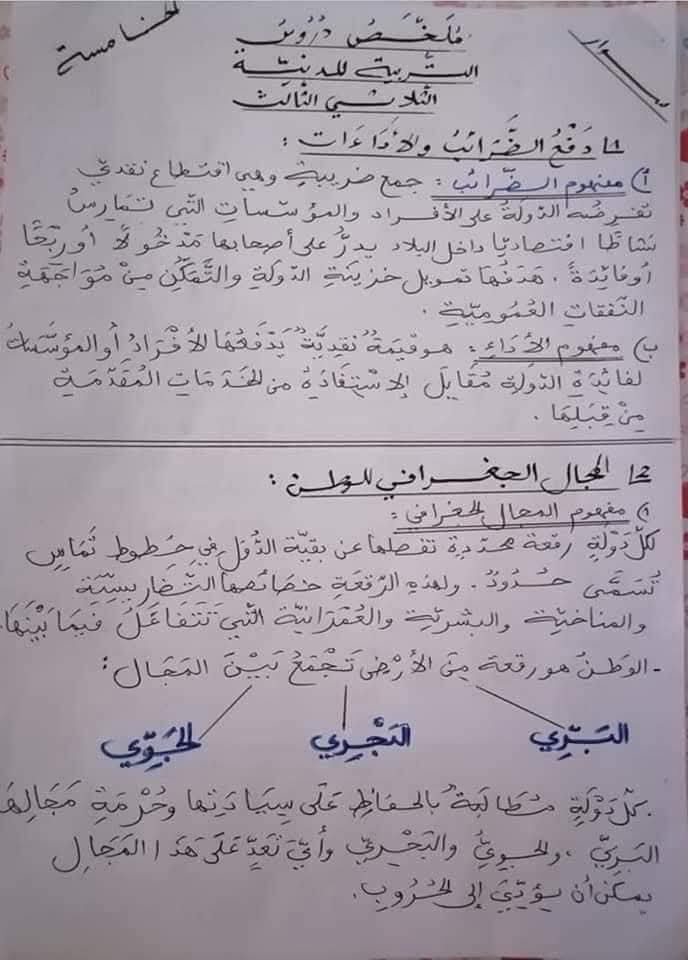 الخامسة
مُلَخَّصُ دُرُوسُ
التربية المدنيّة
الثلاثي الثالث
1/ دَفْعُ الضَّرَائِبُ والأَدَاءَات :
أ) مفهوم الضرائب : جمع ضريبة وهي اقتطاع نقدي
تفرضه الدولة على الأفراد والمؤسسات التي تمارسُ
نشاطًا اقتصاديًا داخل البلاد يدرُّ على أصحابها مَدْخُولًا أو رِبْحًا
أو فائِدَةً. هَدَفُها تمويل خزينة الدولة والتَّمَكُّن مِنْ مُوَاجَهَةِ
النّفقات العُمُوميّة.
ب) مفهوم الأَدَاءِ : هو قِيمَةٌ نَقْدِيَّةٌ يَدْفَعُهَا الأَفْرَادُ أو المؤسَّسَاتُ
لفائدة الدّولة مُقَابِلَ الإِسْتِفَادَةِ من الخَدَمَاتِ المُقَدَّمَةِ
مِنْ قِبَلِهَا.
2/ المجال الجغرافي للوطن :
أ) مفهوم المجال الجغرافي :
لكلّ دَوْلَةٍ رقعة محدّدة تفصلها عن بقيّة الدُّوَل في خطوط تَمَاسٍ
تُسَمَّى حُدُودٌ. ولهذِهِ الرّقعَةِ خصائصها التّضاريسيّة
والمناخيّة والبشريّة والعُمْرَانيّة التّي تَتَفَاعَلُ فِيمَا بَيْنَهَا.
- الوَطَنُ هو رقعة مِنَ الأَرْضِ تَجْمَعُ بَيْنَ المَجَال :
البَرِّي البَحْرِي الجَوِّي
. كلّ دَوْلَةٍ مُطَالَبَةٌ بالحفاظِ عَلَى سِيَادَتِهَا وحُرْمَةِ مَجَالِهَا
البَرِيّ، والجويّ والبَحْريّ وأيّ تَعَدٍّ عَلَى هَذَا المَجَال
يمكن أن يؤدّيَ إلى الحُرُوبِ.